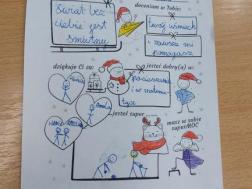 Świat bez
ciebie jest
smutny
doceniam w Tobie:
Twój uśmiech
i zawsze mi
pomagasz
dziękuję Ci za:
jesteś dobry(a) w:
pocieszaniu
i w robieniu
jesteś super
masz w sobie
superMOC